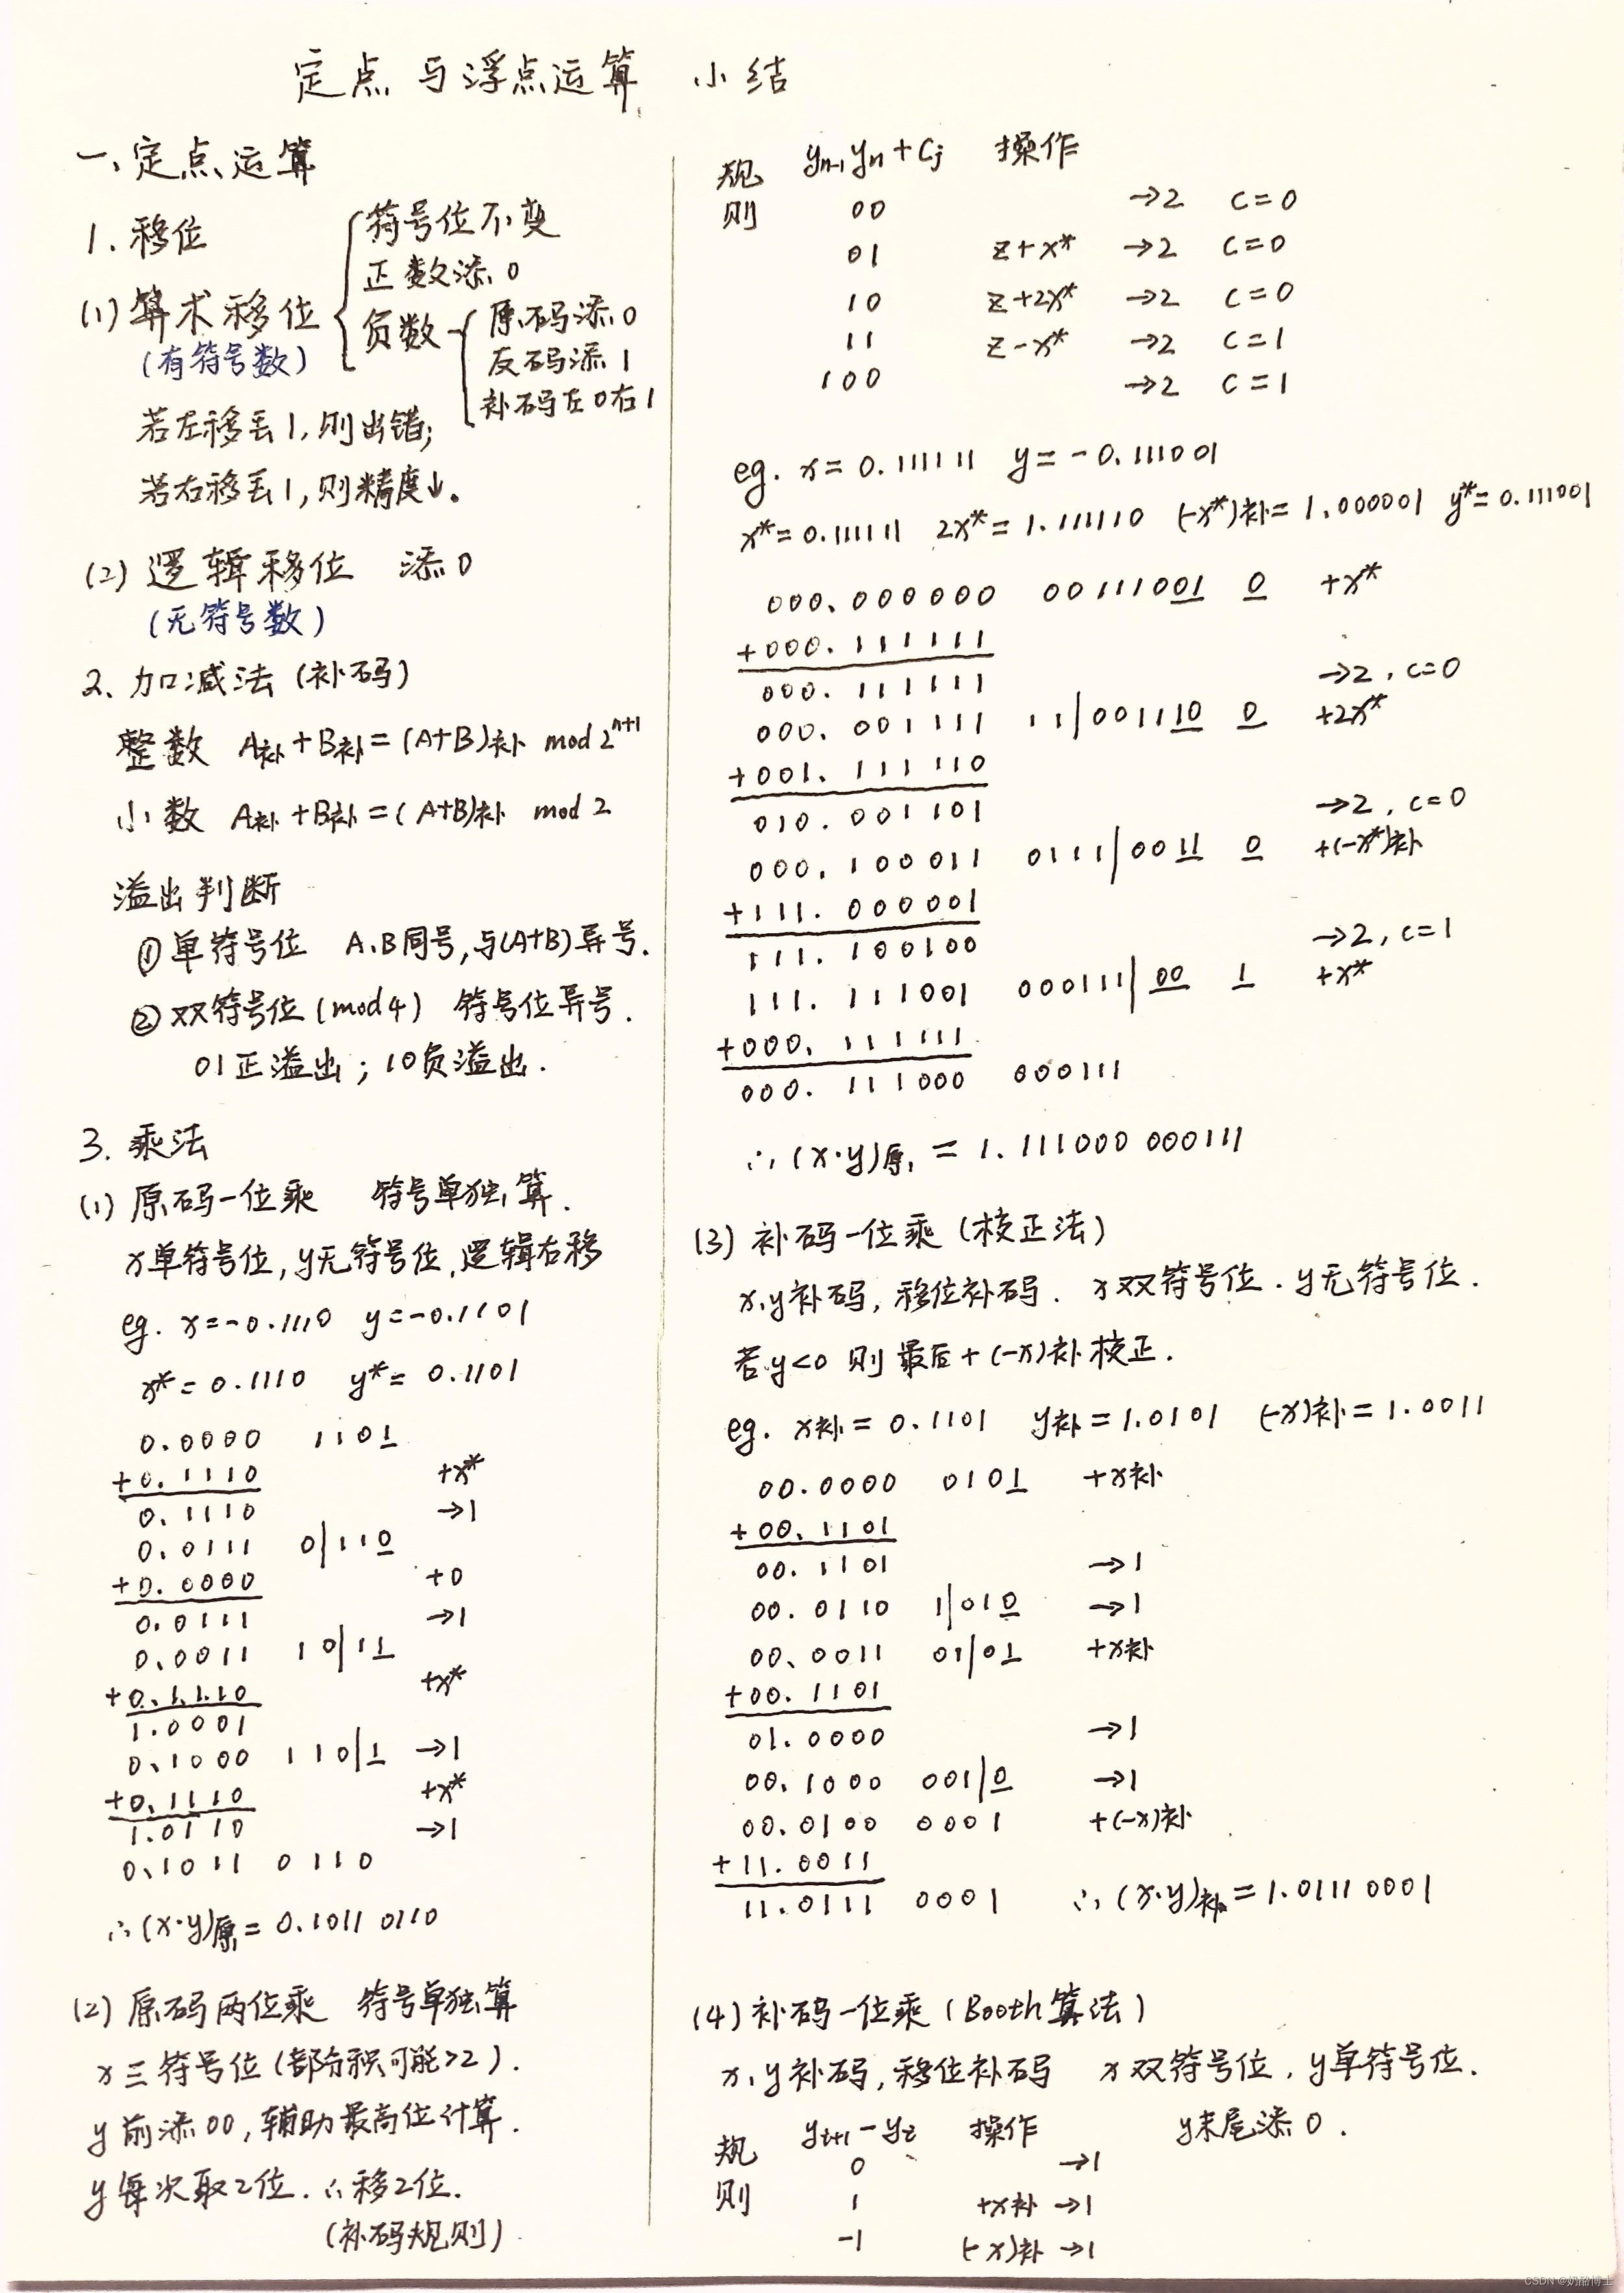 定点与浮点运算 小结
一、定点运算
1. 移位
(1) 算术移位
(有符号数)
符号位不变
正数添0
负数
原码添0
反码添1
补码左0右1
若左移丢1,则出错;
若右移丢1,则精度↓。
(2) 逻辑移位 添0
(无符号数)
2. 加减法 (补码)
整数 A补+B补=(A+B)补 mod 2^{n+1}
小数 A补+B补=(A+B)补 mod 2
溢出判断
① 单符号位 A、B同号,与(A+B)异号.
② 双符号位 (mod 4) 符号位异号.
01正溢出; 10负溢出.
3. 乘法
(1) 原码一位乘 符号单独算.
x单符号位, y无符号位, 逻辑右移
eg. x=-0.1110 y=-0.1101
x*=0.1110 y*=0.1101
0.0000 1101
+0.1110 +x*
0.1110 →1
0.0111 0|110
+0.0000 +0
0.0111 →1
0.0011 10|11
+0.1110 +x*
1.0001
0.1000 110|1 →1
+0.1110 +x*
1.0110 →1
0.1011 0110
∴(x·y)原=0.10110110
(2) 原码两位乘 符号单独算
x三符号位(部分积可能>2).
y前添00, 辅助最高位计算.
y每次取2位. ∴移2位.
(补码规则)
规则 y_{n-1}y_n+C_j 操作
00 →2 c=0
01 z+x* →2 c=0
10 z+2x* →2 c=0
11 z-x* →2 c=1
100 →2 c=1
eg. x=0.111111 y=-0.111001
x*=0.111111 2x*=1.111110 (-x*)补=1.000001 y*=0.111001
000.000000 00111001 0 +x*
+000.111111
000.111111 →2, c=0
000.001111 11|001110 0 +2x*
+001.111110
010.001101 →2, c=0
000.100011 0111|0011 0 +(-x*)补
+111.000001
111.100100 →2, c=1
111.111001 000111|00 1 +x*
+000.111111
000.111000 000111
∴(x·y)原=1.111000000111
(3) 补码一位乘 (校正法)
x,y补码, 移位补码. x双符号位. y无符号位.
若y<0 则最后+(-x)补校正.
eg. x补=0.1101 y补=1.0101 (-x)补=1.0011
00.0000 0101 +x补
+00.1101
00.1101 →1
00.0110 1|010 →1
00.0011 01|01 +x补
+00.1101
01.0000 →1
00.1000 001|0 →1
00.0100 0001 +(-x)补
+11.0011
11.0111 0001 ∴(x·y)补=1.01110001
(4) 补码一位乘 (Booth算法)
x,y补码, 移位补码 x双符号位, y单符号位.
规则 y_{i+1}-y_i 操作 y末尾添0.
0 →1
1 +x补 →1
-1 (-x)补 →1
CSDN @奶酪博士